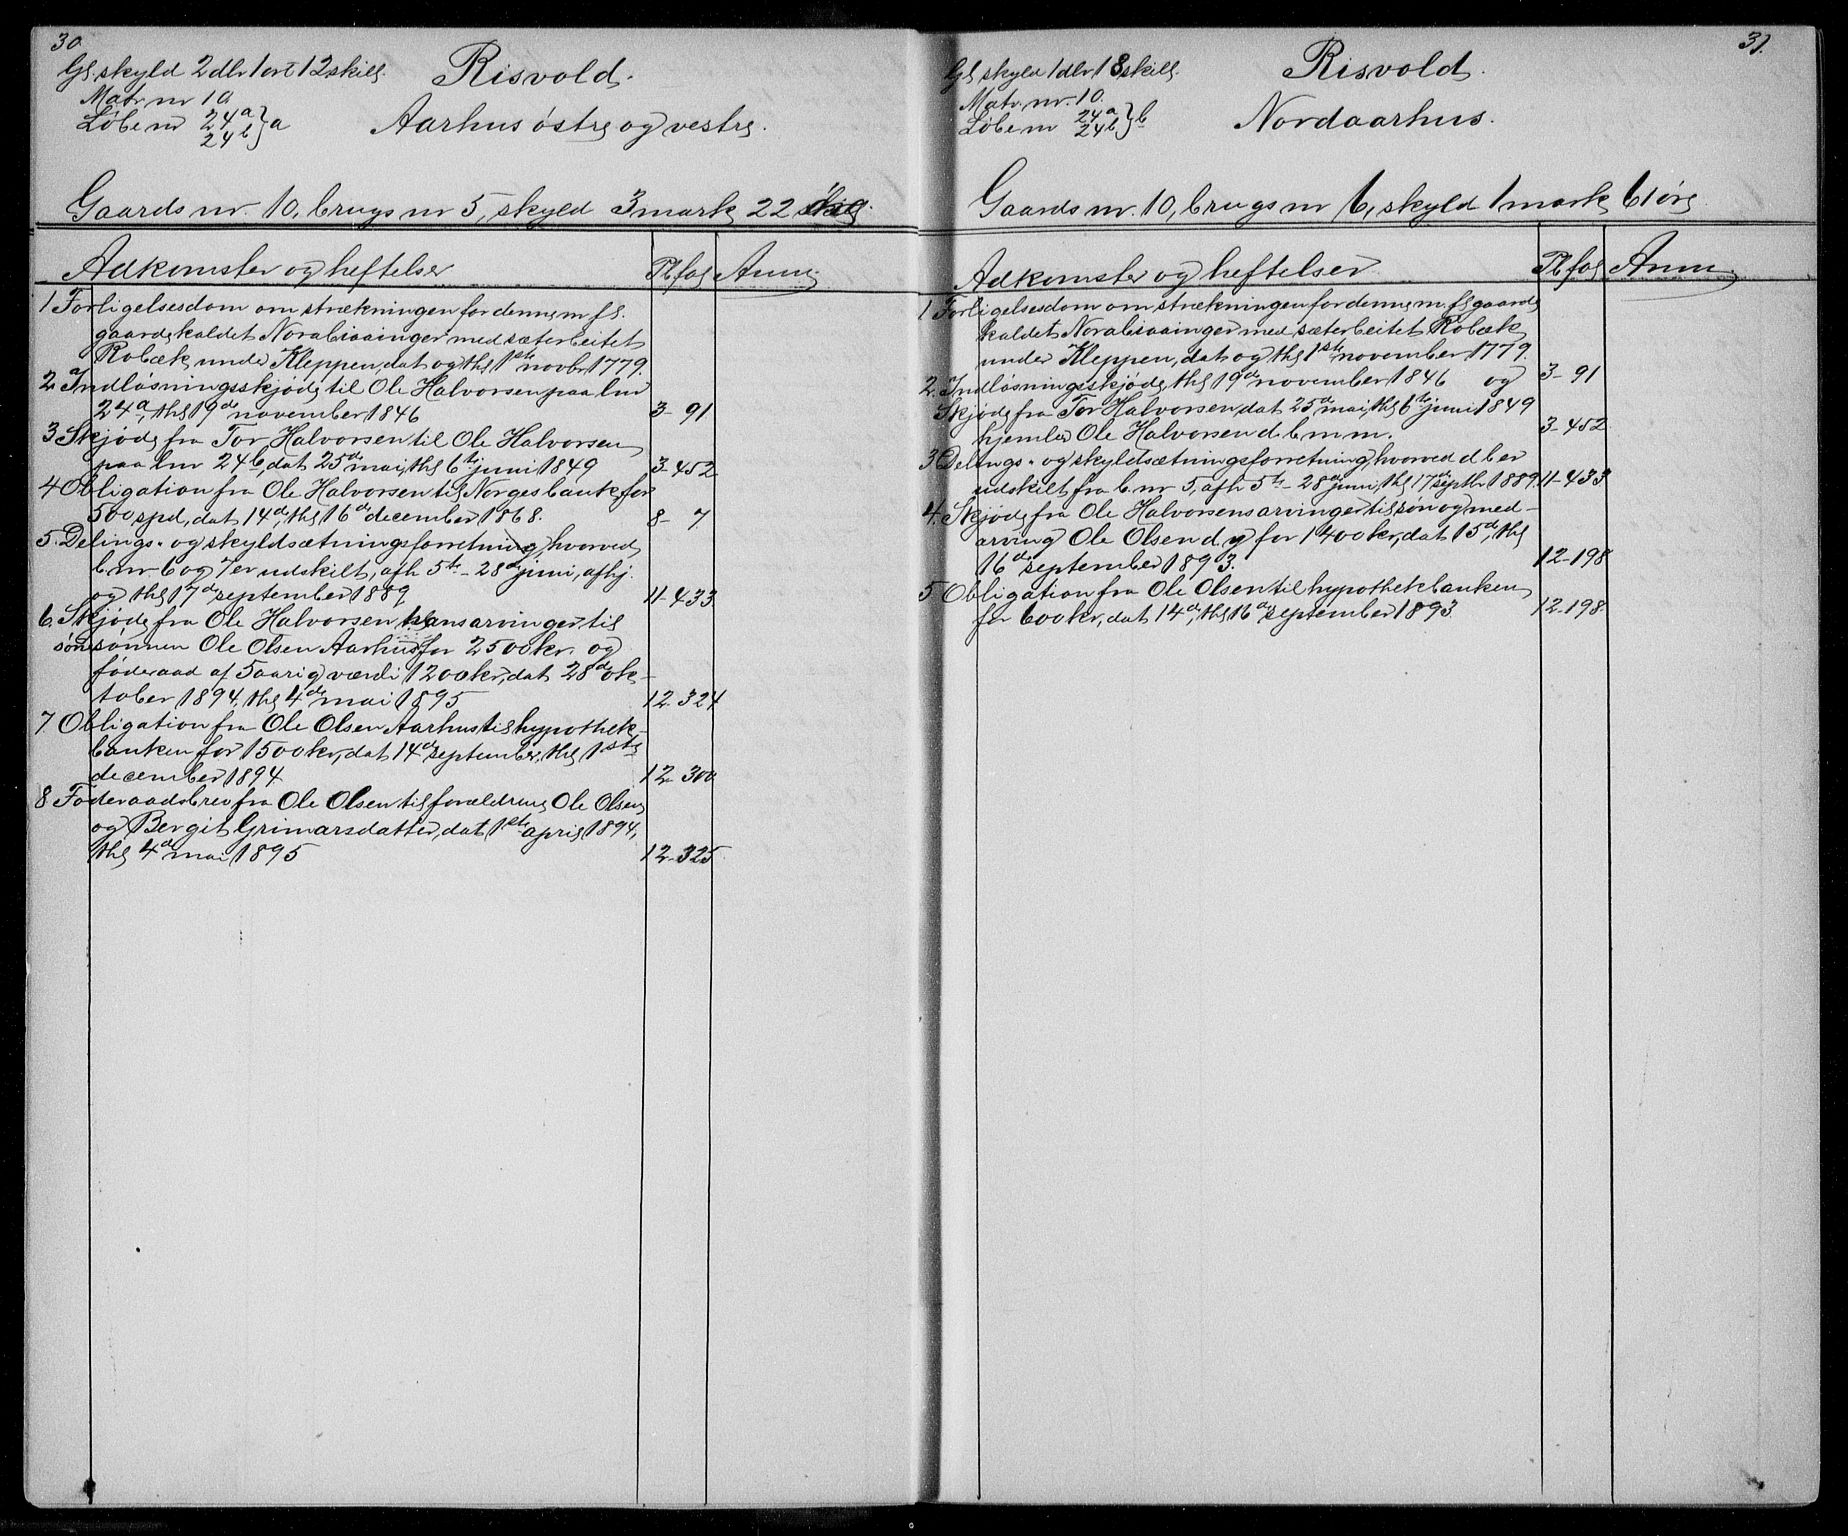 30
Gl. skyld 2 dlr 1 ort 12 skill.
Matr nr 10
Løbe nr 24a } a
24b
Risvold.
Aarhus østre og vestre.
Gaards nr. 10, brugs nr 5, skyld 3 mark 22 øre.
Adkomster og heftelser Pb fol Anm.
1 Forligelsesdom om strækningen for denne m. fl.
gaarde kaldet Norabraainger med sæterbeitet
Robæk under Kleppen, dat og thl 1ste novbr 1779.
2 Indløsningsskjøde til Ole Halvorsen paa lnr
24a, thl 19de november 1846 3-91
3 Skjøde fra Tor Halvorsen til Ole Halvorsen
paa lnr 24b, dat 25de mai, thl 6te juni 1849 3-452
4 Obligation fra Ole Halvorsen til Norges bank for
500 spd, dat 14de, thl 16de december 1868. 8-7
5. Delings- og skyldsætningsforretning, hvorved
b.nr. 6 og 7 er udskilt, afh 5te-28de juni, afhj.
og thl 17de september 1889 11-433
6. Skjøde fra Ole Halvorsen hans arvinger til
sønnesønnen Ole Olsen Aarhus for 2500 kr. og
føderaad af 5 aarig værdi 1200 kr, dat 28de ok-
tober 1894, thl 4de mai 1895 12-324
7 Obligation fra Ole Olsen Aarhus til hypothek-
banken for 1500 kr, dat 14de september, thl 1ste
december 1894 12-300
8 Føderaadsbrev fra Ole Olsen til forældrene Ole Olsen
og Bergit Grimarsdatter, dat 1ste april 1894,
thl 4de mai 1895 12-325
31.
Gl skyld 1 dlr 18 skill.
Matr. nr. 10.
Løbe nr 24a } b
24b
Risvold.
Nordaarhus.
Gaards nr. 10, brugs nr 6, skyld 1 mark 61 øre
Adkomster og heftelser Pb fol Anm.
1 Forligelsesdom om strækningen for denne m. fl gaarde
kaldet Norabraainger med sæterbeitet Robæk
under Kleppen, dat og thl 1ste november 1779.
2. Indløsningsskjøde thl 19de november 1846 og 3-91
Skjøde fra Tor Halvorsen, dat 25de mai, thl 6te juni 1849
hjemler Ole Halvorsen d b m m. 3-452
3 Delings- og skyldsætningsforretning, hvorved d b er
udskilt fra b. nr 5, afh 5te-28de juni, thl 17de septbr 1889 11-433
4. Skjøde fra Ole Halvorsens arvinger til søn og med-
arving Ole Olsen d. y for 1400 kr, dat 15de, thl
16de september 1893. 12-198
5 Obligation fra Ole Olsen til hypothekbanken
for 600 kr, dat 14de, thl 16de september 1893 12-198